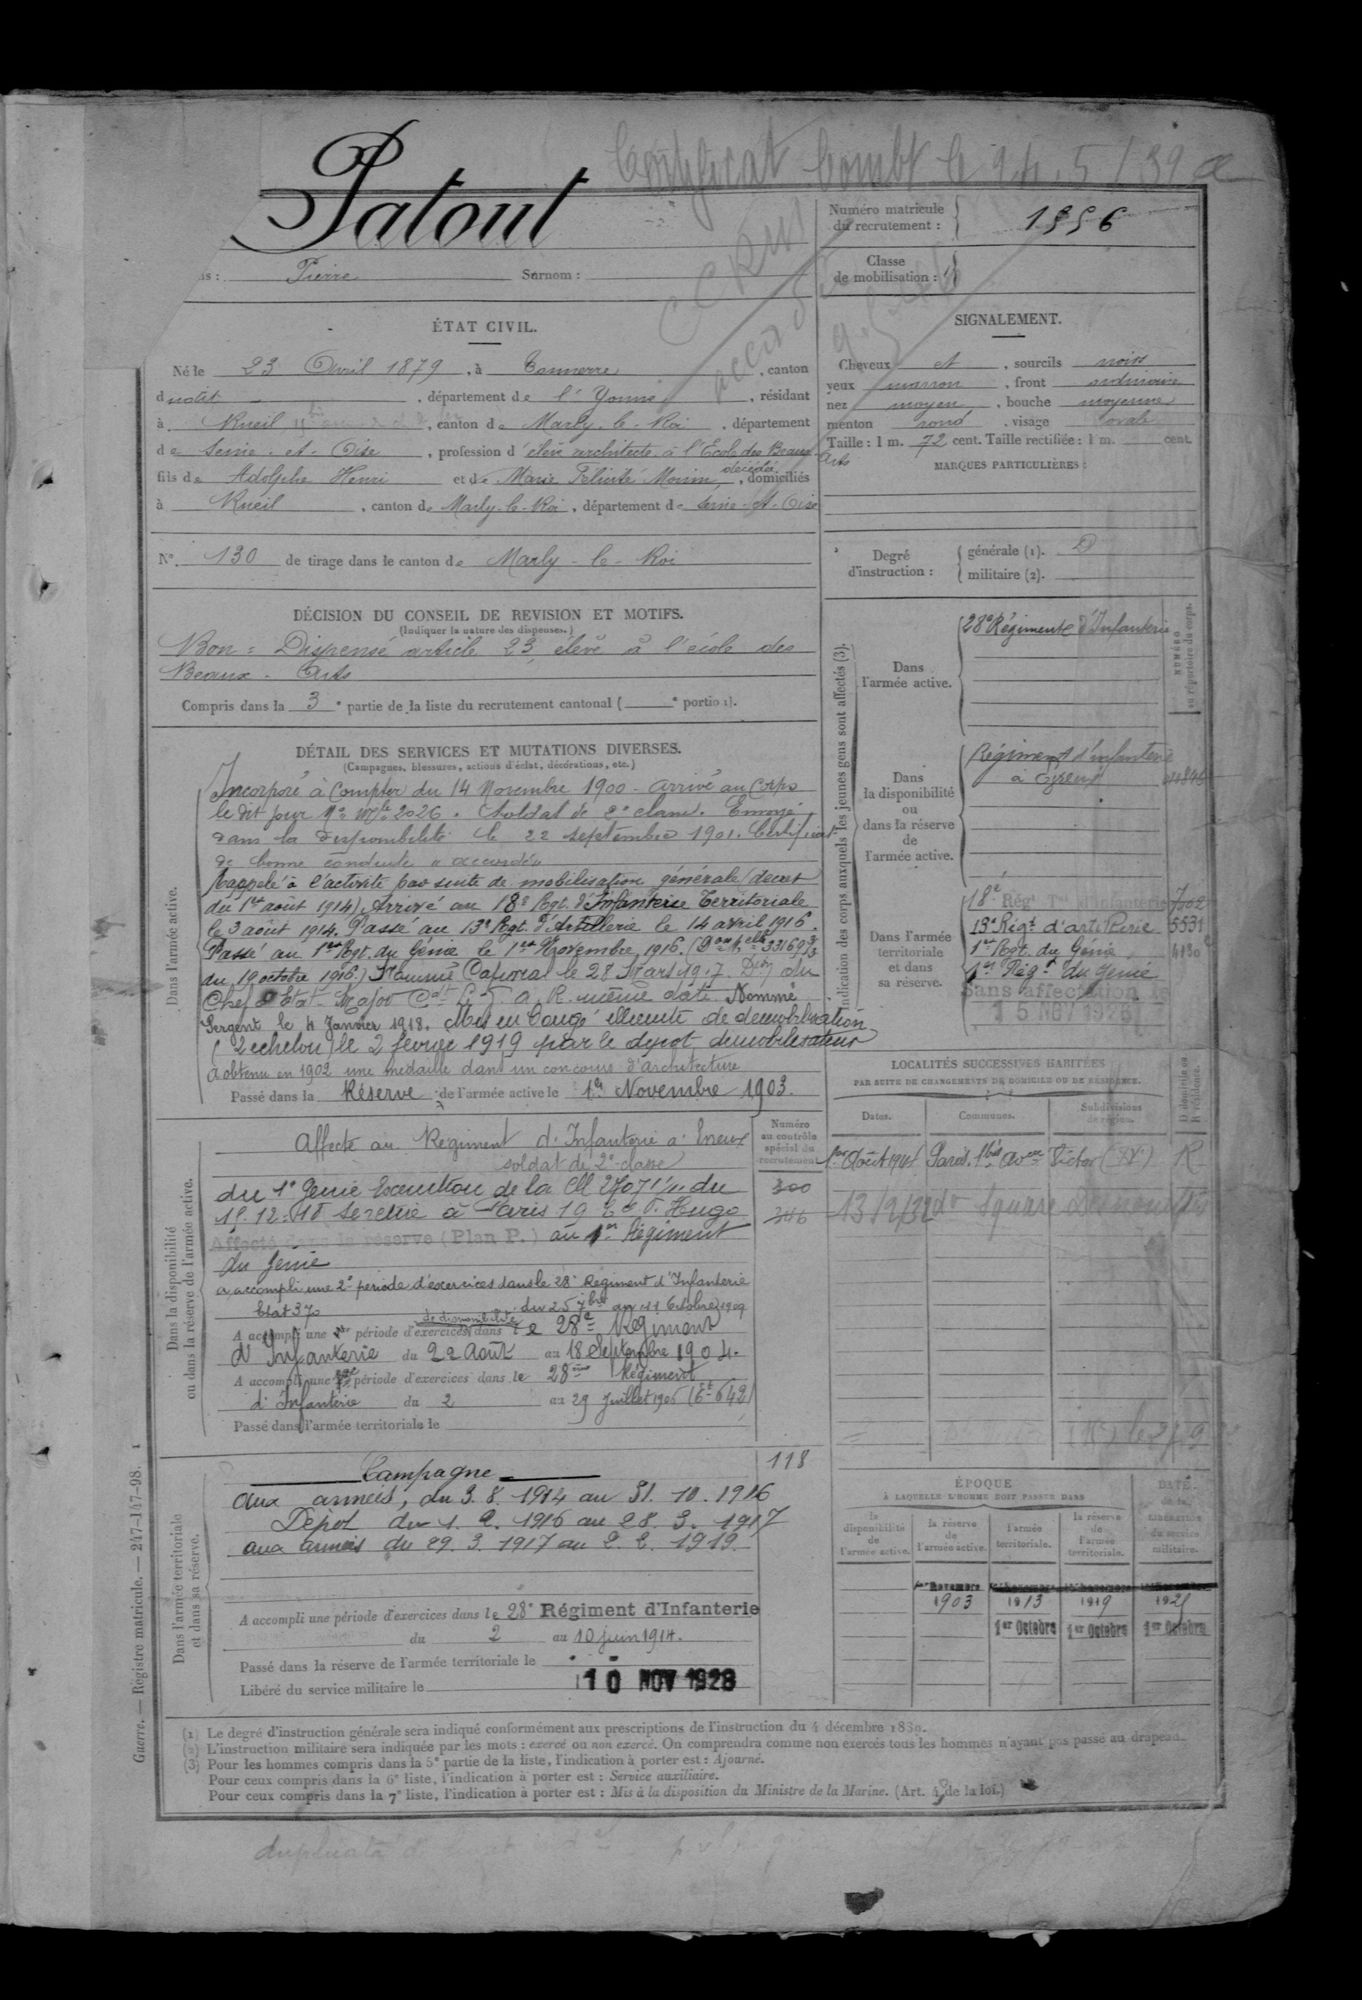 Certificat Combt le 24.5/39
Patout
Numéro matricule du recrutement : 1556
Pierre Surnom :
Classe de mobilisation :
ÉTAT CIVIL.
Né le 23 Avril 1879, à Tonnerre, canton
dudit, département de l'Yonne, résidant
à Rueil, canton de Marly-le-Roi, département
de Seine-et-Oise, profession d'élève architecte à l'Ecole des Beaux-Arts
fils de Adolphe Henri et de Marie Félicité Morin, décédée, domiciliés
à Rueil, canton de Marly-le-Roi, département de Seine-et-Oise
N° 130 de tirage dans le canton de Marly-le-Roi
SIGNALEMENT.
Cheveux et, sourcils noirs
yeux marron, front ordinaire
nez moyen, bouche moyenne
menton rond, visage ovale
Taille : 1 m. 72 cent. Taille rectifiée : 1 m. cent.
MARQUES PARTICULIÈRES :
Degré d'instruction :
générale (1). D
militaire (2).
DÉCISION DU CONSEIL DE REVISION ET MOTIFS.
(Indiquer la nature des dispenses.)
Bon = Dispensé article 23 élève à l'école des
Beaux-Arts
Compris dans la 3e partie de la liste du recrutement cantonal ( e portion).
DÉTAIL DES SERVICES ET MUTATIONS DIVERSES.
(Campagnes, blessures, actions d'éclat, décorations, etc.)
Dans l'armée active.
Incorporé à compter du 14 Novembre 1900 - arrivé au corps
le dit jour No Mle 2026. Soldat de 2e classe. Envoyé
dans la disponibilité le 22 septembre 1901. Certificat
de bonne conduite "accordé"
Rappelé à l'activité par suite de mobilisation générale (décret
du 1er août 1914) Arrivé au 18e Rgt. d'Infanterie Territoriale
le 3 août 1914. Passé au 13e Rgt. d'Artillerie le 14 avril 1916.
Passé au 1er Rgt. du Génie le 1er Novembre 1916.
du 19 octobre 1916) Nommé Caporal le 28 Mars 1917 Don du
Chef d'Etat-Major même date. Nommé
Sergent le 4 Janvier 1918. Mis en congé illimité de démobilisation
(2 echelon) le 2 février 1919 par le dépôt démobilisateur
a obtenu en 1902 une médaille dans un concours d'architecture
Passé dans la Réserve de l'armée active le 1er Novembre 1903.
Indication des corps auxquels les jeunes gens sont affectés (3).
NUMÉRO au répertoire du corps.
Dans l'armée active.
28e Régiment d'Infanterie
Dans la disponibilité ou dans la réserve de l'armée active.
Régiment d'infanterie
à Evreux
Dans l'armée territoriale et dans sa réserve.
18e Régt Tal d'infanterie 7902
13e Régt d'artillerie 5531
1er Rgt. du Génie
1er Régt du Génie
Sans affectation le
15 NOV 1926
Dans la disponibilité ou dans la réserve de l'armée active.
Numéro au contrôle spécial du recrutement
Affecté au Régiment d'Infanterie à Evreux
soldat de 2e classe
du 1er Génie Exécution de la CM 27071 1/11 du
se retire à Paris 19 V. Hugo
Affecté dans la réserve (Plan P.) au 1er Régiment
du Génie
300
346
a accompli une 2e période d'exercices dans le 28e Régiment d'Infanterie
Etat 370 du 25 7bre au 11 Octobre 1909
A accompli une 1re période d'exercices de disponibilité dans le 28e Régiment
d'Infanterie du 22 Août au 18 Septembre 1904.
A accompli une période d'exercices dans le 28ème Régiment
d'Infanterie du 2 au 29 Juillet 1906 (Et 642)
Passé dans l'armée territoriale le
LOCALITÉS SUCCESSIVES HABITÉES
PAR SUITE DE CHANGEMENTS DE DOMICILE OU DE RÉSIDENCE.
Dates. Communes. Subdivisions de région. D domicile ou R résidence.
1er Août 1904 Paris. 1bis Victor (XV) R
13/2/32 do Square
Dans l'armée territoriale et dans sa réserve.
118
Campagne
aux armées, du 3.8.1914 au 31.10.1916
Dépot du 1. 1916 au 28.3.1917
aux armées du 29.3.1917 au 2.2.1919.
A accompli une période d'exercices dans le 28e Régiment d'Infanterie
du 2 au 10 juin 1914.
Passé dans la réserve de l'armée territoriale le
Libéré du service militaire le 10 NOV 1928
ÉPOQUE
À LAQUELLE L'HOMME DOIT PASSER DANS
la disponibilité de l'armée active. la réserve de l'armée active. l'armée territoriale. la réserve de l'armée territoriale.
DATE de la LIBÉRATION du service militaire.
1er Novembre 1er Novembre 1er Novembre 1er Novembre
1903 1913 1919 1925
1er Octobre 1er Octobre 1er Octobre
(1) Le degré d'instruction générale sera indiqué conformément aux prescriptions de l'instruction du 4 décembre 1889.
(2) L'instruction militaire sera indiquée par les mots : exercé ou non exercé. On comprendra comme non exercés tous les hommes n'ayant pas passé au drapeau.
(3) Pour les hommes compris dans la 5e partie de la liste, l'indication à porter est : Ajourné.
Pour ceux compris dans la 6e liste, l'indication à porter est : Service auxiliaire.
Pour ceux compris dans la 7e liste, l'indication à porter est : Mis à la disposition du Ministre de la Marine. (Art. 4 de la loi.)
Guerre. — Régistre matricule. — 247-147-98.
duplicata